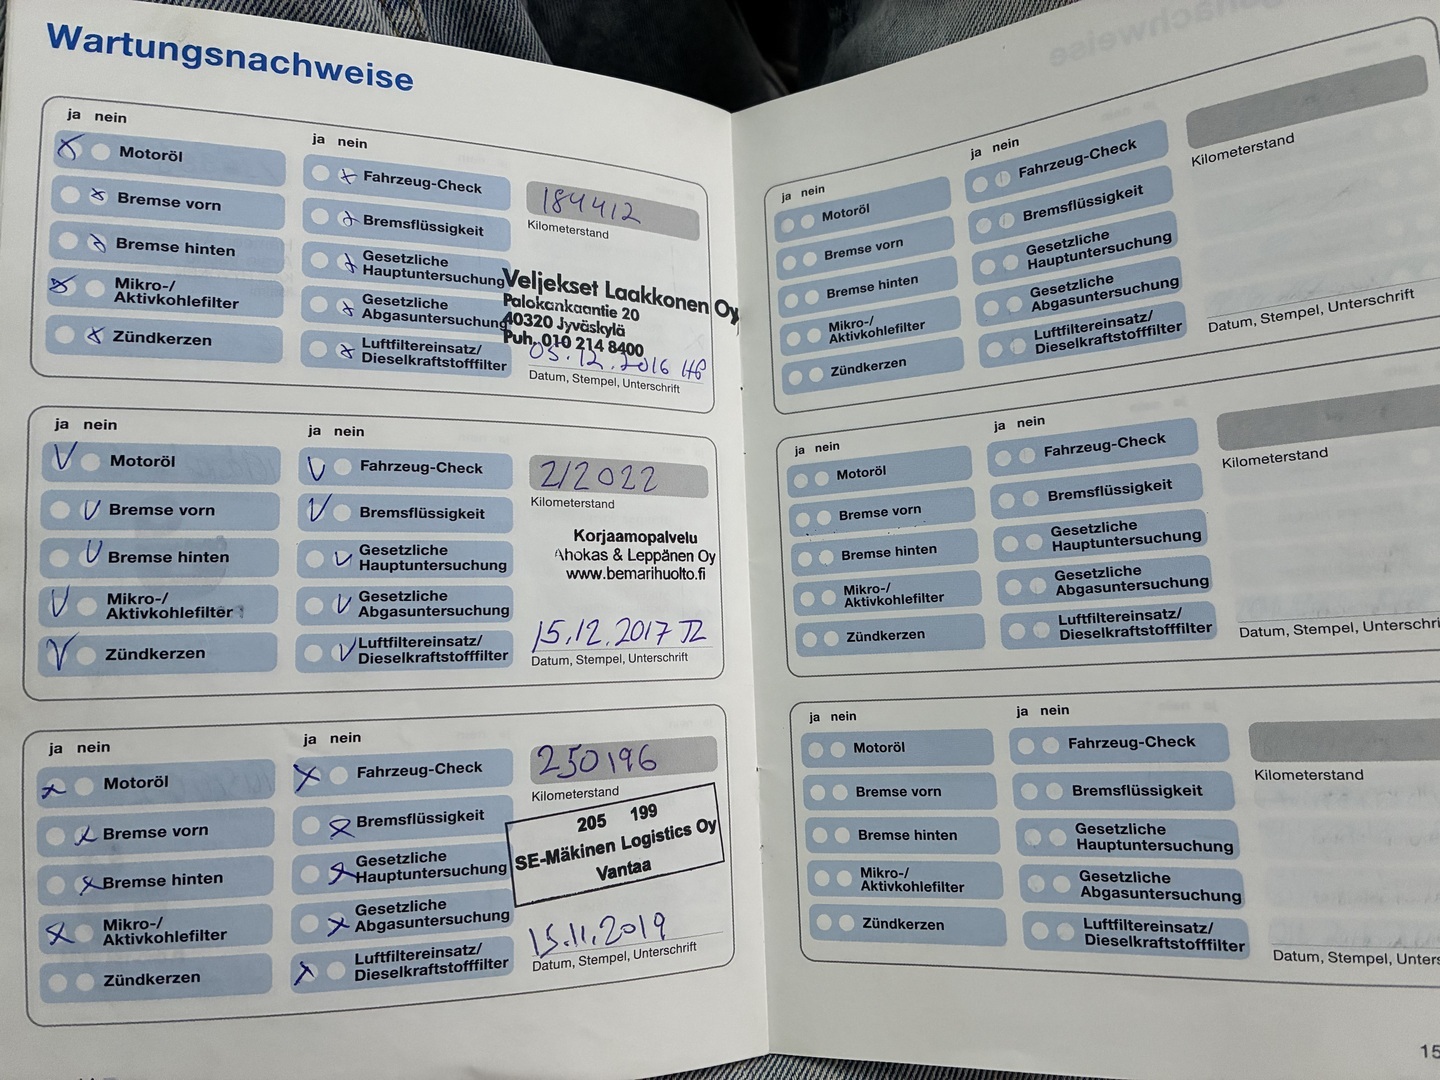 Wartungsnachweise
ja nein
Motoröl
Bremse vorn
Bremse hinten
Mikro-/
Aktivkohlefilter
Zündkerzen
ja nein
Fahrzeug-Check
Bremsflüssigkeit
Gesetzliche
Hauptuntersuchung
Gesetzliche
Abgasuntersuchung
Luftfiltereinsatz/
Dieselkraftstofffilter
184412
Kilometerstand
Veljekset Laakkonen Oy
Palokankaantie 20
40320 Jyväskylä
Puh. 010 214 8400
05.12.2016 HP
Datum, Stempel, Unterschrift
ja nein
Motoröl
Bremse vorn
Bremse hinten
Mikro-/
Aktivkohlefilter
Zündkerzen
ja nein
Fahrzeug-Check
Bremsflüssigkeit
Gesetzliche
Hauptuntersuchung
Gesetzliche
Abgasuntersuchung
Luftfiltereinsatz/
Dieselkraftstofffilter
212022
Kilometerstand
Korjaamopalvelu
Ahokas & Leppänen Oy
www.bemarihuolto.fi
15.12.2017
Datum, Stempel, Unterschrift
ja nein
Motoröl
Bremse vorn
Bremse hinten
Mikro-/
Aktivkohlefilter
Zündkerzen
ja nein
Fahrzeug-Check
Bremsflüssigkeit
Gesetzliche
Hauptuntersuchung
Gesetzliche
Abgasuntersuchung
Luftfiltereinsatz/
Dieselkraftstofffilter
250196
Kilometerstand
205 199
SE-Mäkinen Logistics Oy
Vantaa
15.11.2019
Datum, Stempel, Unterschrift
ja nein
Motoröl
Bremse vorn
Bremse hinten
Mikro-/
Aktivkohlefilter
Zündkerzen
ja nein
Fahrzeug-Check
Bremsflüssigkeit
Gesetzliche
Hauptuntersuchung
Gesetzliche
Abgasuntersuchung
Luftfiltereinsatz/
Dieselkraftstofffilter
Kilometerstand
Datum, Stempel, Unterschrift
ja nein
Motoröl
Bremse vorn
Bremse hinten
Mikro-/
Aktivkohlefilter
Zündkerzen
ja nein
Fahrzeug-Check
Bremsflüssigkeit
Gesetzliche
Hauptuntersuchung
Gesetzliche
Abgasuntersuchung
Luftfiltereinsatz/
Dieselkraftstofffilter
Kilometerstand
Datum, Stempel, Unterschri
ja nein
Motoröl
Bremse vorn
Bremse hinten
Mikro-/
Aktivkohlefilter
Zündkerzen
ja nein
Fahrzeug-Check
Bremsflüssigkeit
Gesetzliche
Hauptuntersuchung
Gesetzliche
Abgasuntersuchung
Luftfiltereinsatz/
Dieselkraftstofffilter
Kilometerstand
Datum, Stempel, Unters
15